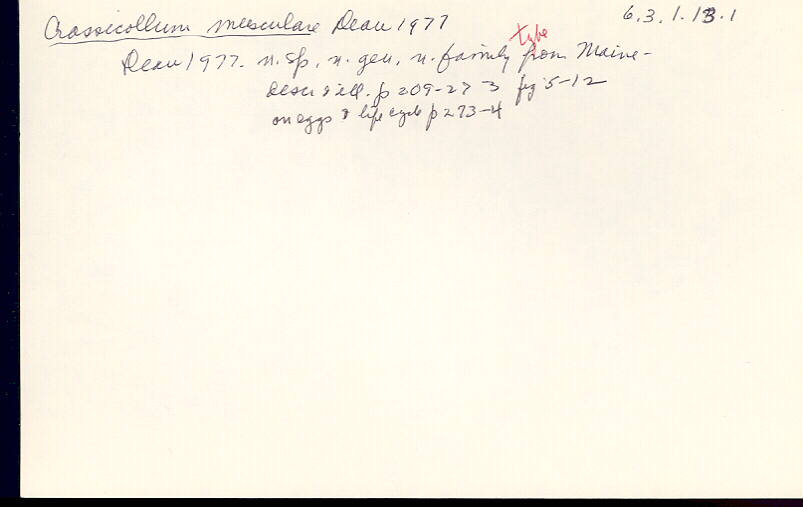 Crassicollum musculare Dean 1977 6.3.1.13.1
type
Dean 1977. n. sp., n. gen, n. family from Maine -
descr & ill. p 209-273 fig 5-12
on eggs & life cycle p 273-4